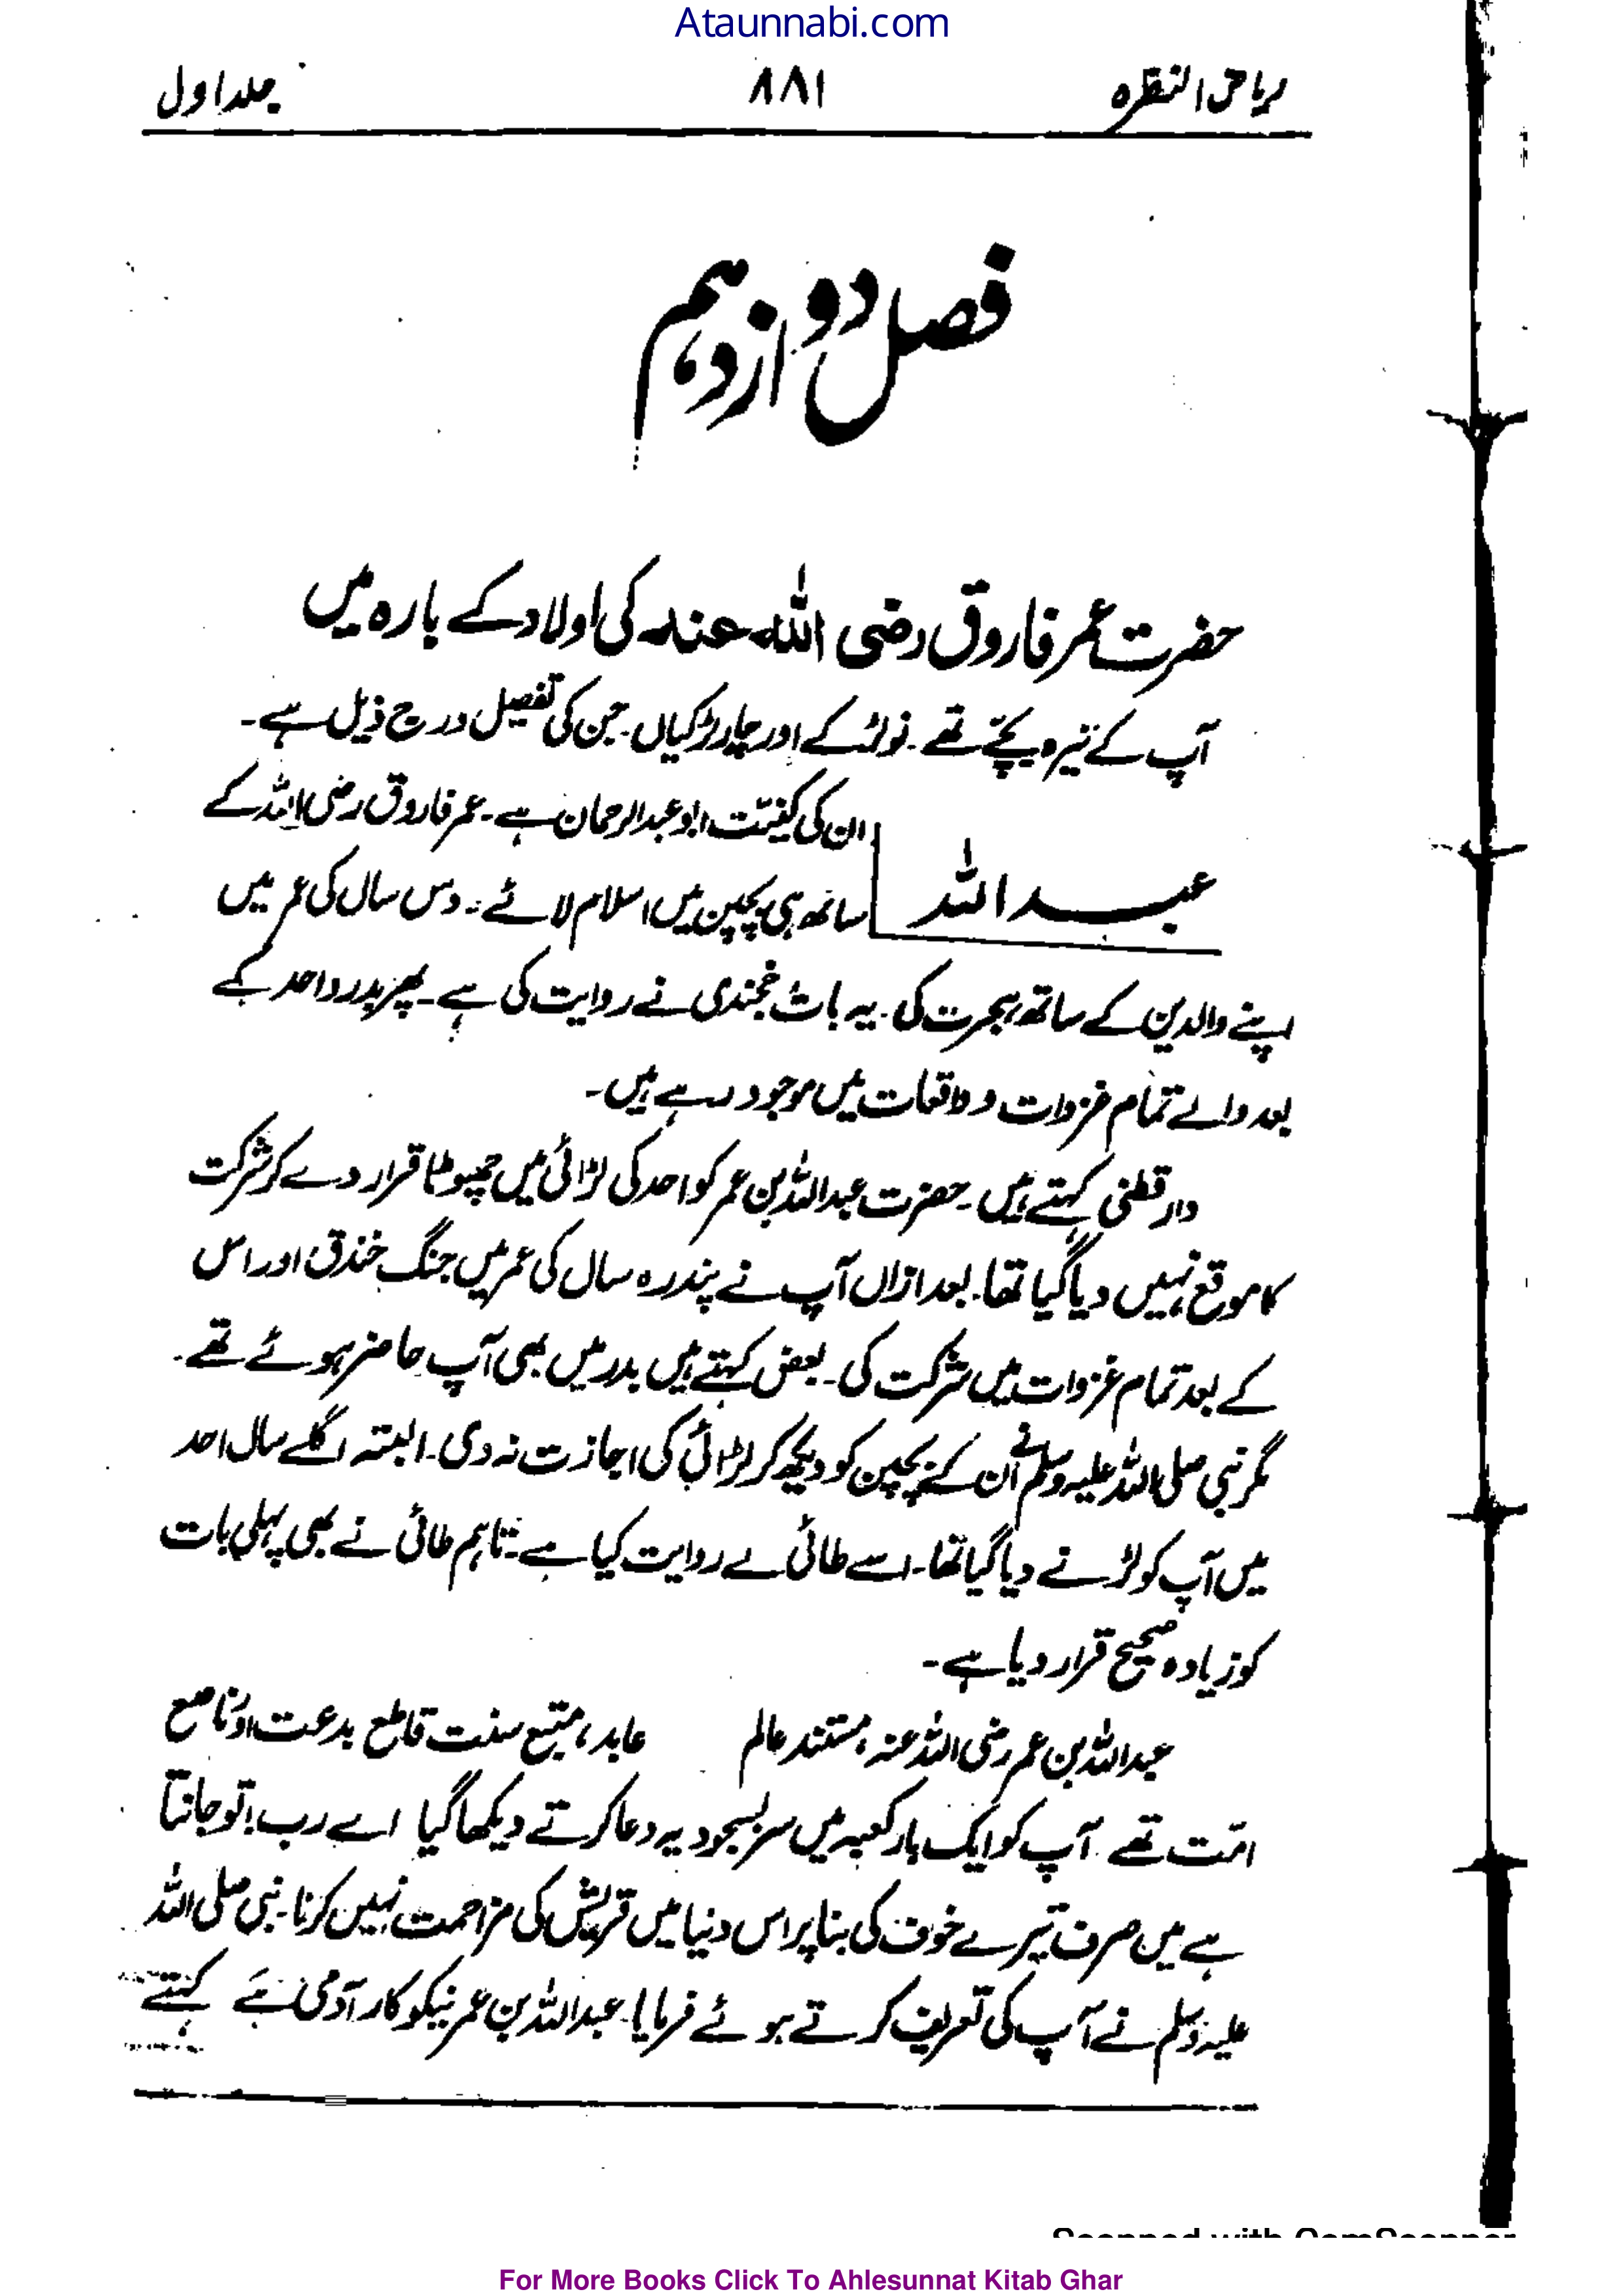 Ataunnabi.com
ریاض النضرہ ۸۸۱ جلد اول
فصل دوازدہم
حضرت عمر فاروق رضی اللہ عنہ کی اولاد کے بارہ میں
آپ کے تیرہ بچے تھے۔ نو لڑکے اور چار لڑکیاں۔ جن کی تفصیل درج ذیل ہے۔
عبداللہ
ان کی کنیت ابو عبدالرحمان ہے۔ عمر فاروق رضی اللہ کے
ساتھ ہی بچپن میں اسلام لائے۔ دس سال کی عمر میں
اپنے والدین کے ساتھ ہجرت کی۔ یہ بات خجندی نے روایت کی ہے۔ پھر بدر و احد کے
بعد والے تمام غزوات و واقعات میں موجود رہے ہیں۔
دارقطنی کہتے ہیں۔ حضرت عبداللہ بن عمر کو احد کی لڑائی میں چھوٹا قرار دے کر شرکت
کا موقع نہیں دیا گیا تھا۔ بعد ازاں آپ نے پندرہ سال کی عمر میں جنگ خندق اور اس
کے بعد تمام غزوات میں شرکت کی۔ بعض کہتے ہیں بدر میں بھی آپ حاضر ہوئے تھے۔
مگر نبی صلی اللہ علیہ وسلم نے ان کے بچپن کو دیکھ کر لڑائی کی اجازت نہ دی۔ البتہ اگلے سال احد
میں آپ کو لڑنے دیا گیا تھا۔ اسے طائی نے روایت کیا ہے۔ تاہم طائی نے بھی پہلی بات
کو زیادہ صحیح قرار دیا ہے۔
عبداللہ بن عمر رضی اللہ عنہ، مستند عالم عابد، متبع سنت قاطع بدعت اور ناصح
امت تھے آپ کو ایک بار کعبہ میں سر بسجود یہ دعا کرتے دیکھا گیا اے رب! تو جانتا
ہے میں صرف تیرے خوف کی بنا پر اس دنیا میں قریش کی مزاحمت نہیں کرتا۔ نبی صلی اللہ
علیہ وسلم نے آپ کی تعریف کرتے ہوئے فرمایا۔ عبداللہ بن عمر نیکوکار آدمی ہے کہتے
Scanned with CamScanner
For More Books Click To Ahlesunnat Kitab Ghar